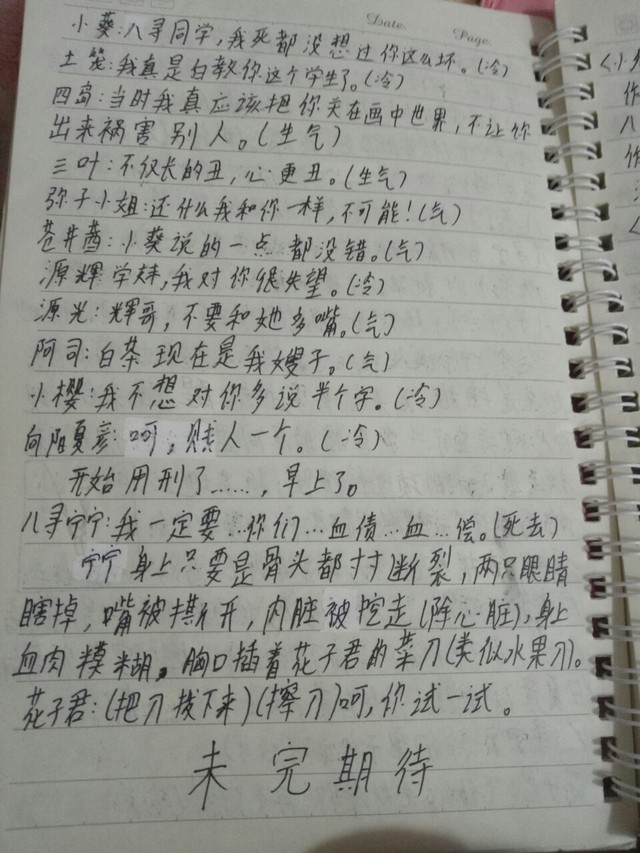 Date
Page
小葵:八寻同学,我死都没想过你这么坏。(冷)
土笼:我真是白教你这个学生了。(冷)
四岛:当时我真应该把你关在画中世界,不让你
出来祸害别人。(生气)
三叶:不仅长的丑,心更丑。(生气)
弥子小姐:还什么我和你一样,不可能!(气)
苍井茜:小葵说的一点都没错。(气)
源辉学妹,我对你很失望。(冷)
源光:辉哥,不要和她多嘴。(气)
阿司:白茶现在是我嫂子。(气)
小樱:我不想对你多说半个字。(冷)
向阳夏彦:呵,贱人一个。(冷)
开始用刑了……,早上了。
八寻宁宁:我一定要…你们…血债…血…偿。(死去)
宁宁身上只要是骨头都寸寸断裂,两只眼睛
瞎掉,嘴被撕开,内脏被挖走(除心脏),身上
血肉模糊。胸口插着花子君的菜刀(类似水果刀)。
花子君:(把刀拔下来)(擦刀)呵,你试一试。
未完期待
<小
作
八
作